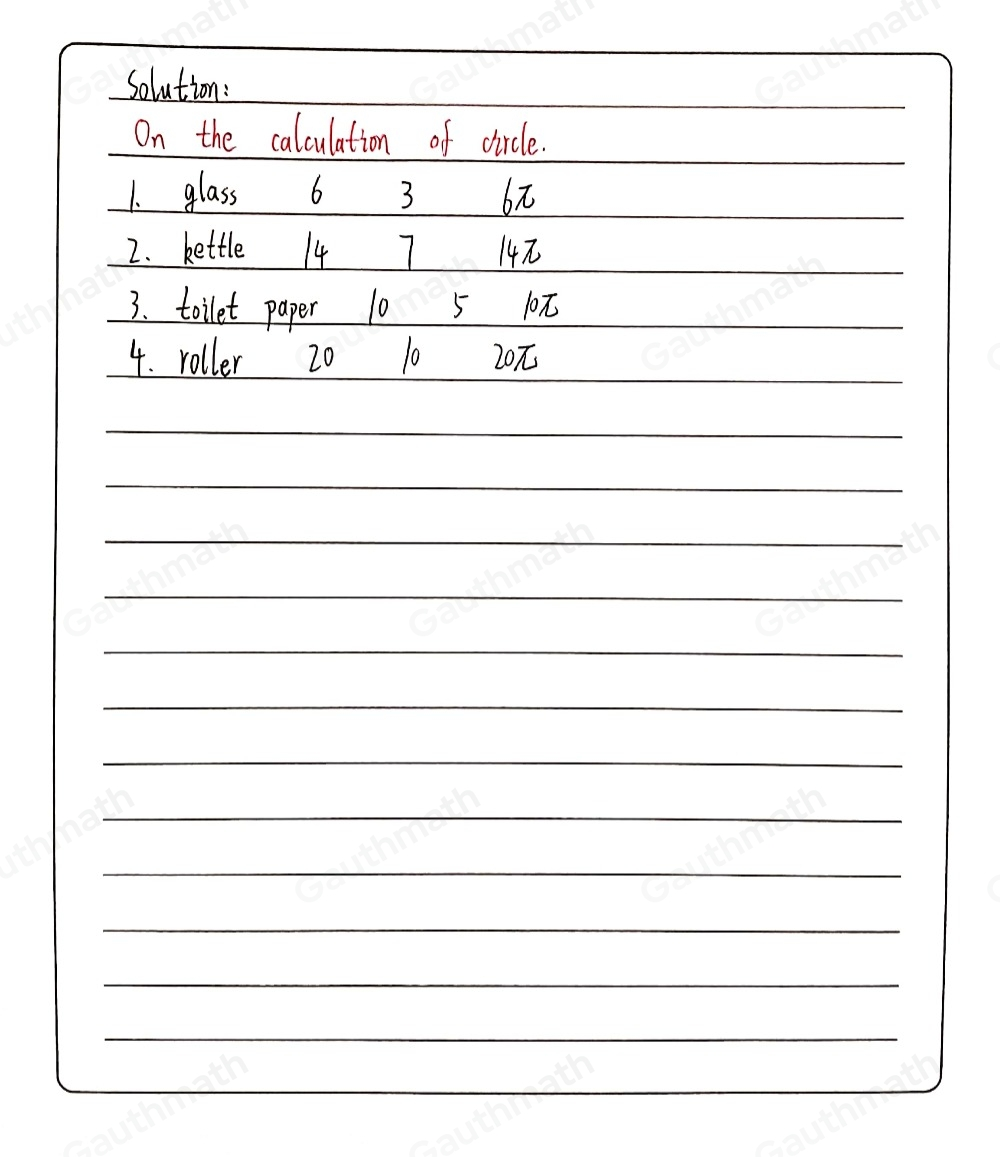 Solution:
On the calculation of circle.
1. glass 6 3 6π
2. kettle 14 7 14π
3. toilet paper 10 5 10π
4. roller 20 10 20π
Gauthmath